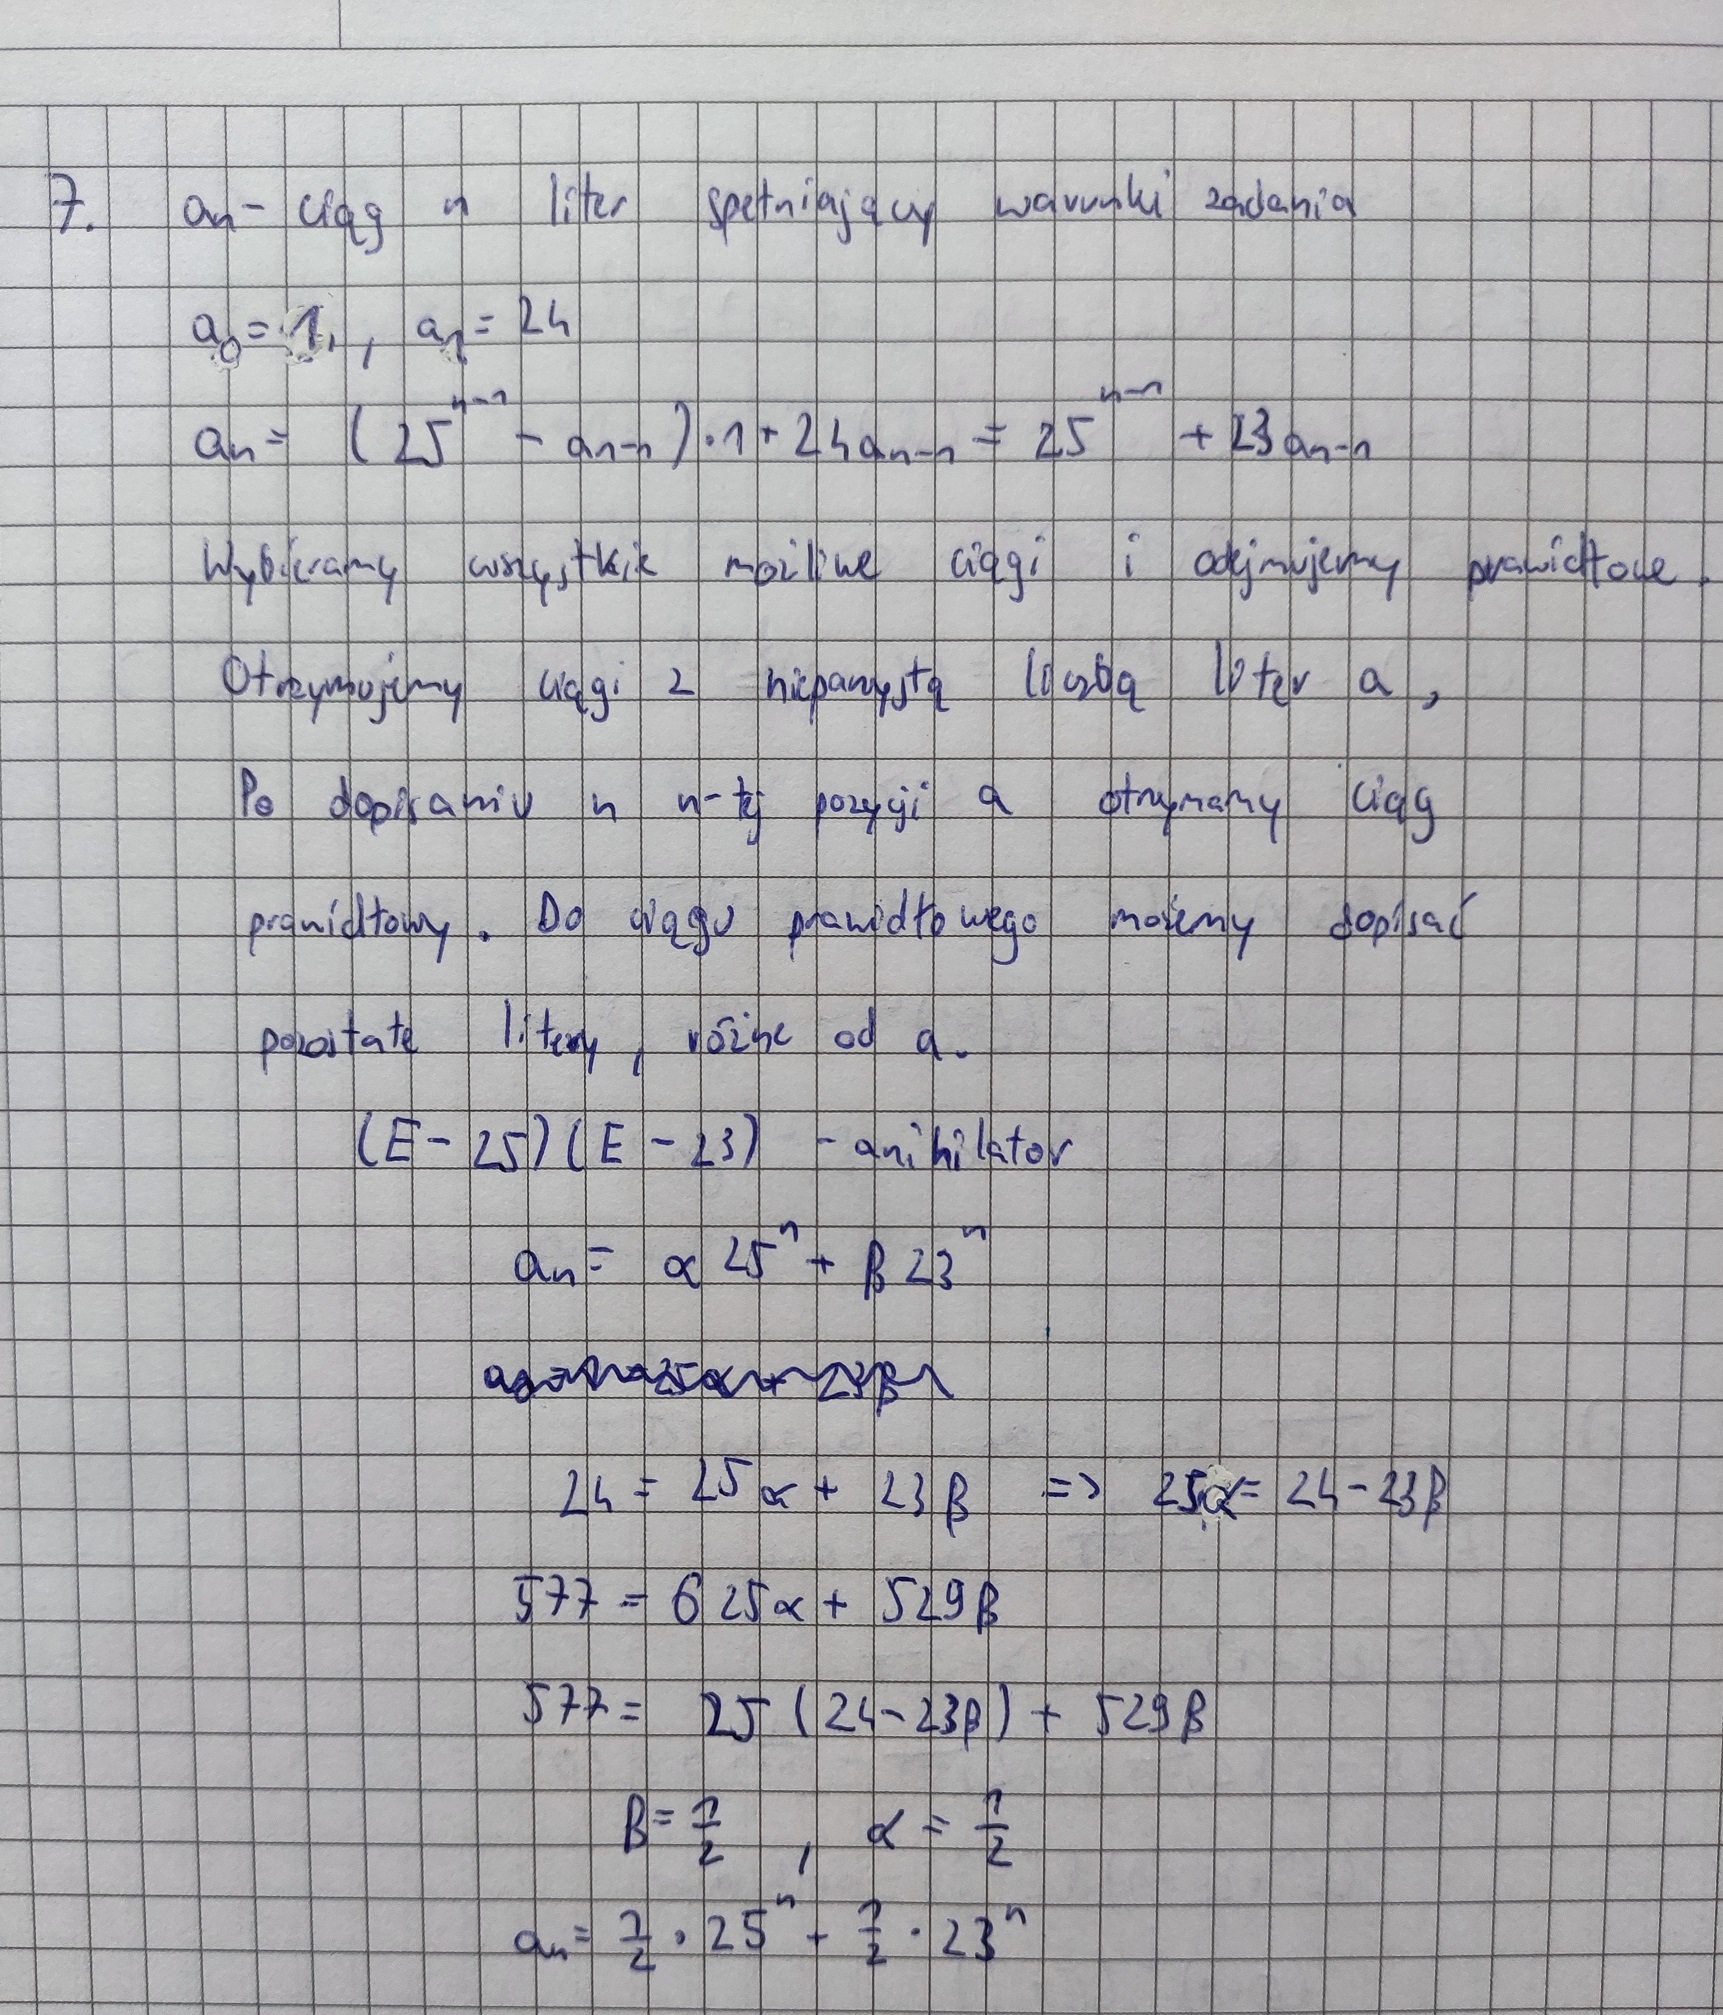 7. an - ciąg n liter spełniający warunki zadania
a₀ = 1, , a₁ = 24
an = (25ⁿ⁻¹ - an-1) · 1 + 24an-1 = 25ⁿ⁻¹ + 23an-1
Wybieramy wszystkie możliwe ciągi i odejmujemy prawidłowe.
Otrzymujemy ciągi z nieparzystą liczbą liter a,
Po dopisaniu n n-tej pozycji a otrzymamy ciąg
prawidłowy. Do ciągu prawidłowego możemy dopisać
pozostałe litery, różne od a.
(E - 25)(E - 23) - anihilator
an = α 25ⁿ + β 23ⁿ
24 = 25α + 23β => 25α = 24 - 23β
577 = 625α + 529β
577 = 25 (24 - 23β) + 529β
β = 1/2 , α = 1/2
an = 1/2 · 25ⁿ + 1/2 · 23ⁿ